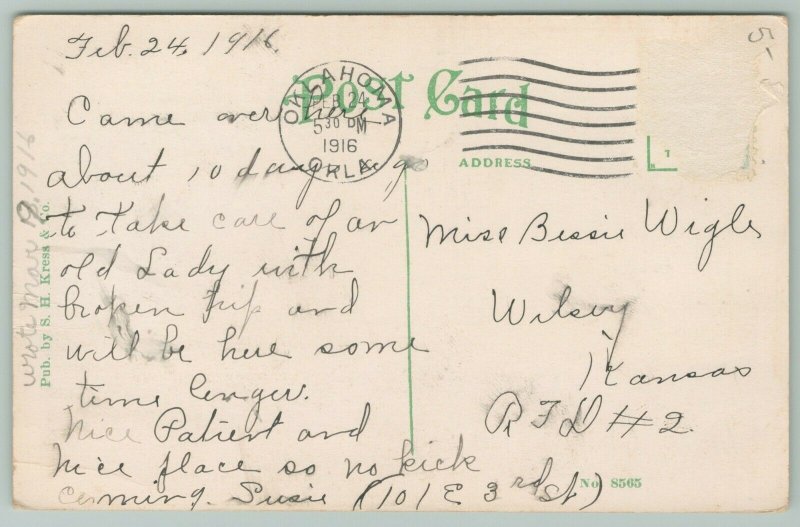 Feb. 24, 1916.
Came over here
about 10 days ago
to take care of an
old Lady with
broken hip and
will be here some
time longer.
Nice Patient and
nice place so no kick
comming. Susie (101 E 3rd St)
wrote Mar 19, 1916
Pub. by S. H. Kress & Co.
Post Card
OKLAHOMA
FEB 24
530 PM
1916
OKLA
ADDRESS
Miss Bessie Wigle
Wilsey
Kansas
R F D #2.
No. 8565
5-